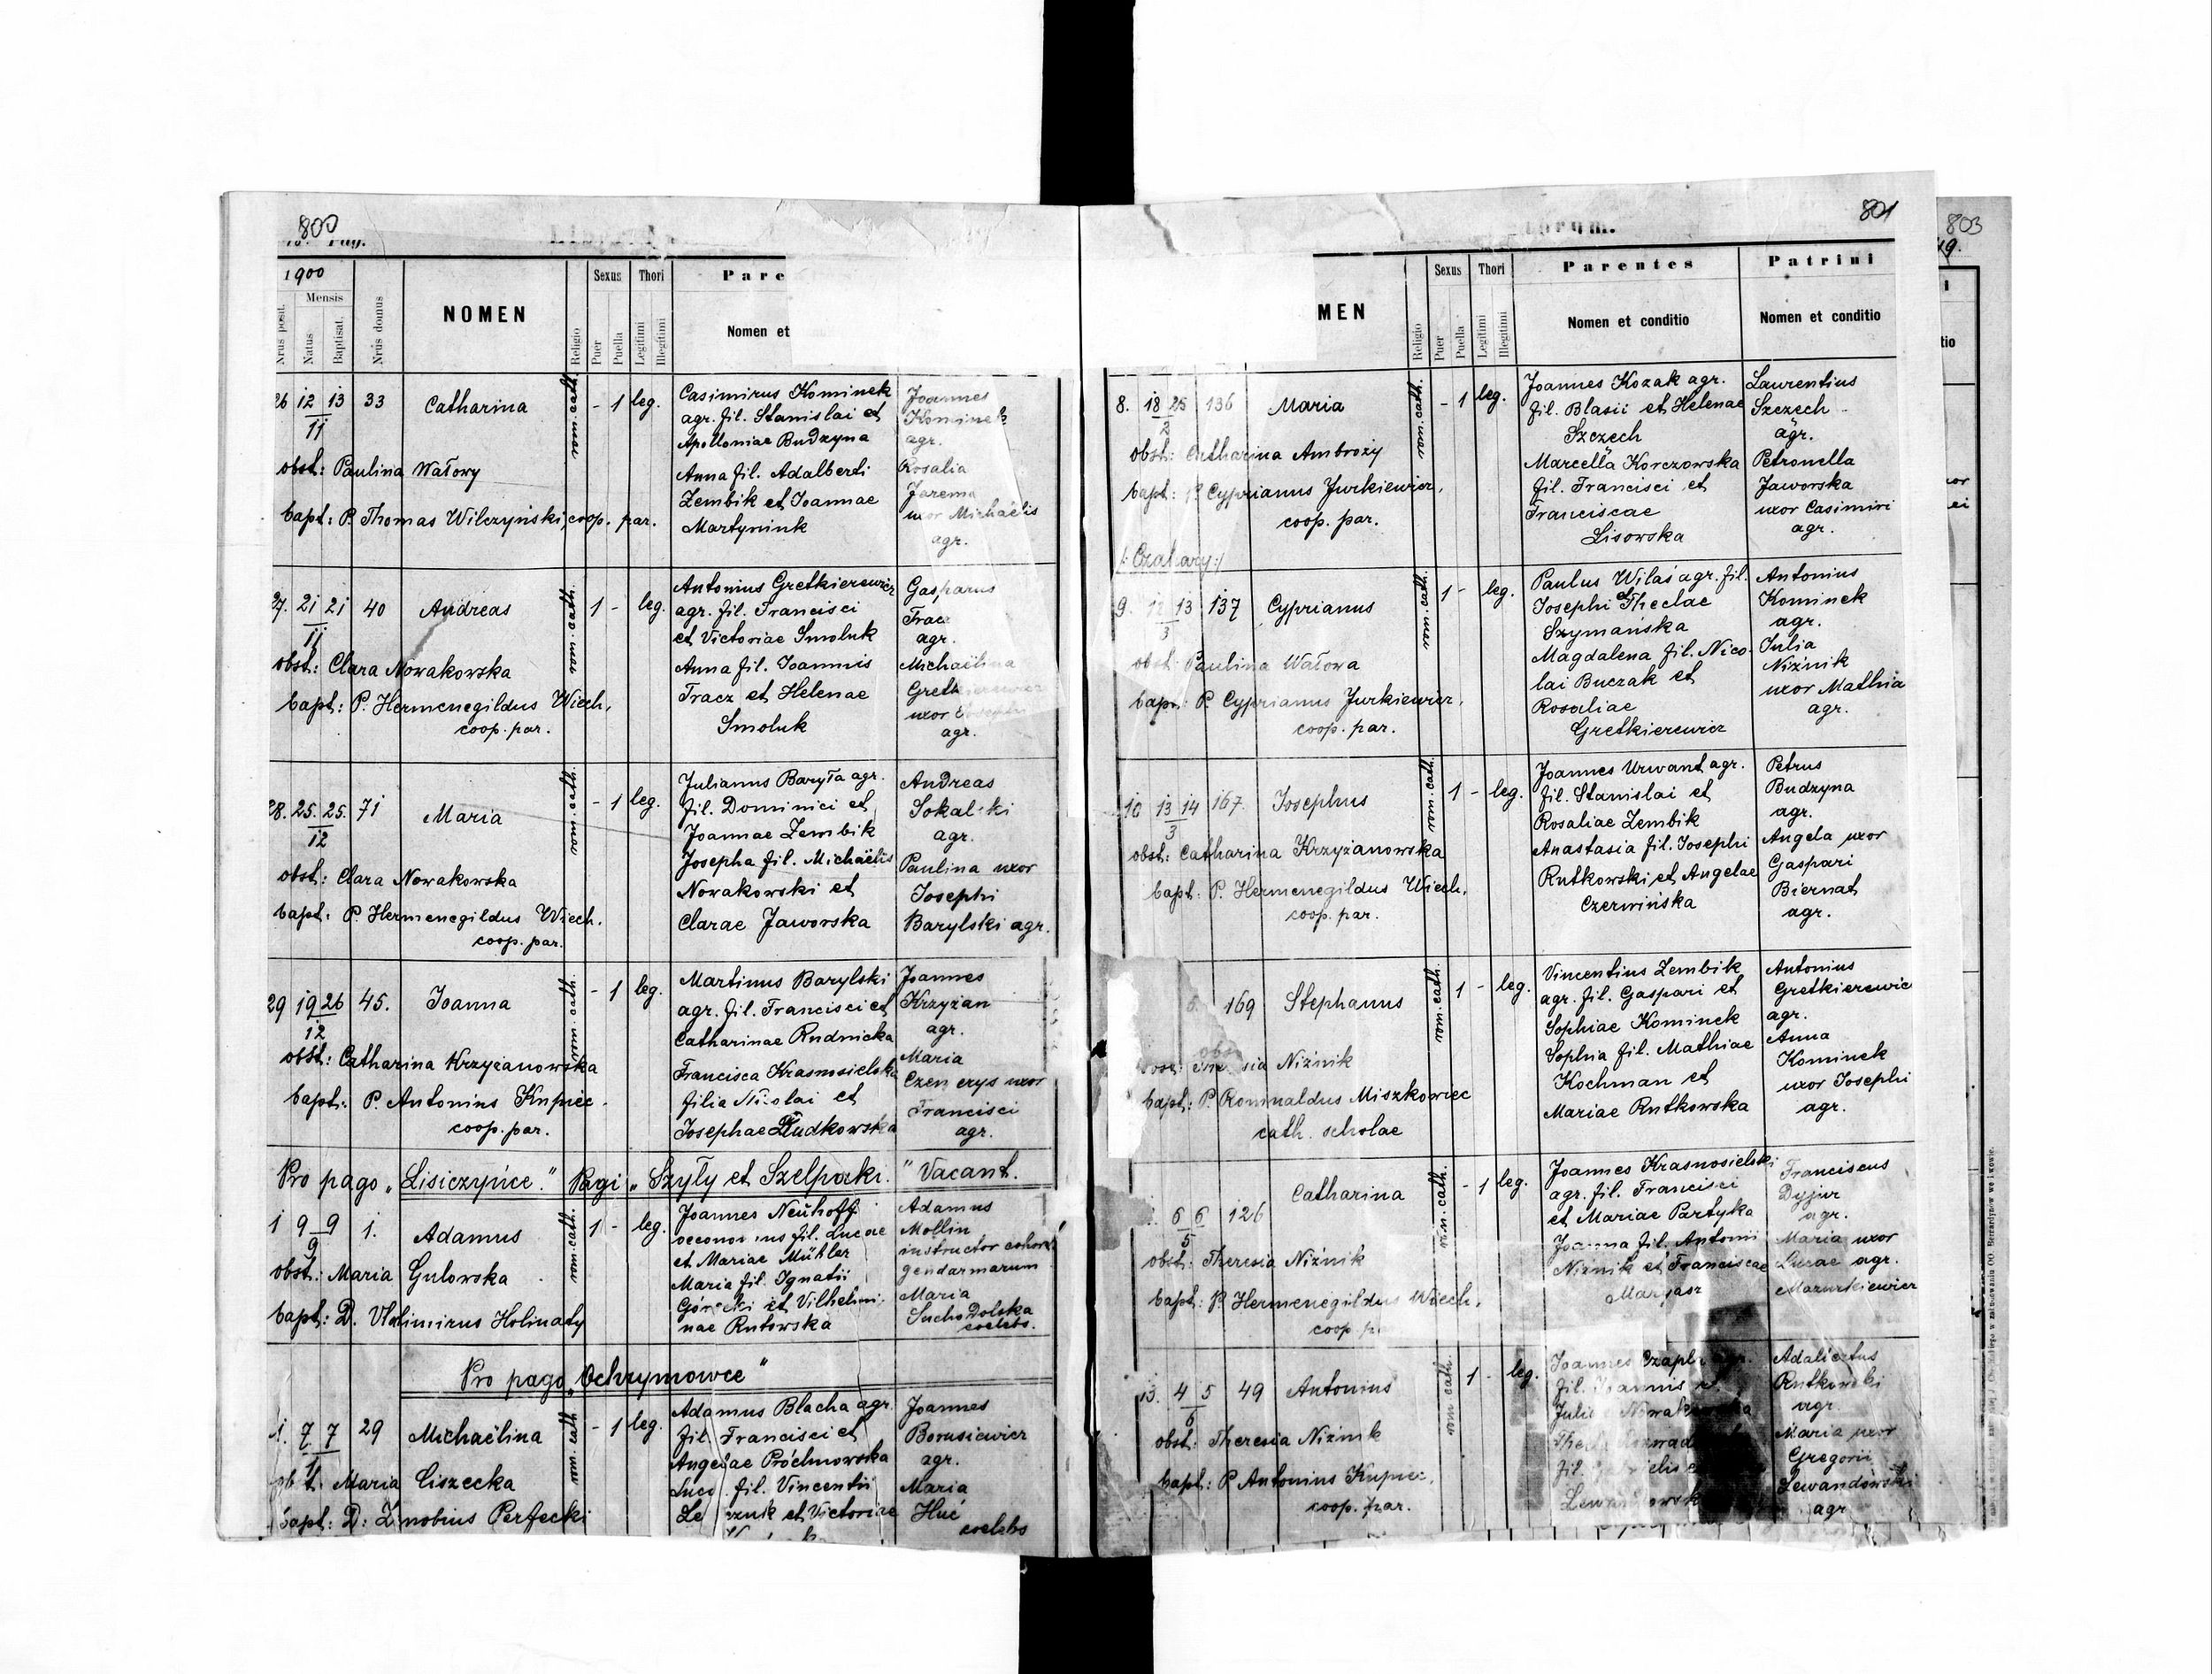 800
1900
Nrus posit.
Mensis
Natus
Baptisat.
Nrus domus
NOMEN
Religio
Sexus
Puer
Puella
Thori
Legitimi
Illegitimi
Pare
Nomen et
26 12/11 13 33 Catharina rom. cath. - 1 leg.
obst: Paulina Wałowy
bapt: P. Thomas Wilczyński, coop. par.
Casimirus Kominek
agr. fil. Stanislai et
Apolloniae Budzyna
Anna fil. Adalberti
Zembik et Joannae
Martyniuk
Joannes
Kominek
agr.
Rosalia
Jarema
uxor Michaëlis
agr.
27. 21/11 21 40 Andreas rom. cath. 1 - leg.
obst: Clara Nowakowska
bapt: P. Hermenegildus Wiech,
coop. par.
Antonius Gretkierewicz
agr. fil. Francisci
et Victoriae Smoluk
Anna fil. Joannis
Tracz et Helenae
Smoluk
Gasparus
Tracz
agr.
Michaëlina
uxor
agr.
28. 25./12 25. 71 Maria rom. cath. - 1 leg.
obst: Clara Nowakowska
bapt: P. Hermenegildus Wiech.
coop. par.
Julianus Baryła agr.
fil. Dominici et
Joannae Zembik
Josepha fil. Michaëlis
Nowakowski et
Clarae Jaworska
Andreas
Sokalski
agr.
Paulina uxor
Josephi
Barylski agr.
29 19/12 26 45. Joanna rom. cath. - 1 leg.
obst: Catharina Krzyżanowska
bapt: P. Antonius Kupiec
coop. par.
Martinus Barylski
agr. fil. Francisci et
Catharinae Rudnicka
Francisca Krasnosielska
filia Nicolai et
Josephae Rudkowska
Joannes
Krzyżan
agr.
Maria
uxor
Francisci
agr.
Pro pago „Lisiczyńce." Pagi „Szyły et Szelpaki." Vacant.
1 9/9 9 1. Adamus rom. cath. 1 - leg.
obst: Maria Gulowska
bapt: D. Vladimirus Holinaty
Joannes Neuhoff
oeconomus fil. Lucae
et Mariae Mühler
Maria fil. Ignatii
Górecki et Vilhelmi-
nae Rutowska
Adamus
Mollin
instructor cohort
gendarmarum
Maria
Suchodolska
coelebs.
Pro pago „Ochrymowce"
1. 7/1 7 29 Michaëlina rom. cath. - 1 leg.
obst. Maria Ciszecka
bapt: D: Zenobius Perfecki
Adamus Blacha agr.
fil. Francisci et
Angelae Próchnowska
fil. Vincentii
et Victoriae
Joannes
Borusiewicz
agr.
Maria
Huć
coelebs
801
MEN
Religio
Sexus
Puer
Puella
Thori
Legitimi
Illegitimi
Parentes
Nomen et conditio
Patrini
Nomen et conditio
8. 18/2 25 136 Maria rom. cath. - 1 leg.
obst: Catharina Ambroży
bapt: P. Cyprianus Jurkiewicz,
coop. par.
/:Czahary:/
Joannes Kozak agr.
fil. Blasii et Helenae
Szczech
Marcella Korczowska
fil. Francisci et
Franciscae
Lisowska
Laurentius
Szczech
agr.
Petronella
Jaworska
uxor Casimiri
agr.
9. 12/3 13 137 Cyprianus rom. cath. 1 - leg.
obst: Paulina Wałowa
bapt: P. Cyprianus Jurkiewicz,
coop. par.
Paulus Wilaś agr. fil.
Josephi et Theclae
Szymańska
Magdalena fil. Nico-
lai Buczak et
Rosaliae
Gretkierewicz
Antonius
Kominek
agr.
Julia
Niżnik
uxor Mathia
agr.
10 13/3 14 167. Josephus rom. cath. 1 - leg.
obst: Catharina Krzyżanowska
bapt: P. Hermenegildus Wiech.
coop. par.
Joannes Urwant agr.
fil. Stanislai et
Rosaliae Zembik
Anastasia fil. Josephi
Rutkowski et Angelae
Czerwińska
Petrus
Budzyna
agr.
Angela uxor
Gaspari
Biernat
agr.
169 Stephanus rom. cath. 1 - leg.
obst: Theresia Niżnik
bapt: P. Romualdus Miszkowiec
cath. scholae
Vincentius Zembik
agr. fil. Gaspari et
Sophiae Kominek
Sophia fil. Mathiae
Kochman et
Mariae Rutkowska
Antonius
Gretkierewic
agr.
Anna
Kominek
uxor Josephi
agr.
6/5 6 126 Catharina rom. cath. - 1 leg.
obst: Theresia Niżnik
bapt: P. Hermenegildus Wiech,
coop. p.
Joannes Krasnosielski
agr. fil. Francisci
et Mariae Partyka
Joanna fil. Antonii
Niżnik et Franciscae
Franciscus
Dyjur
agr.
Maria uxor
Lucae agr.
Mazurkiewicz
13. 4/6 5 49 Antonius rom. cath. 1 - leg.
obst: Theresia Niżnik
bapt: P. Antonius Kupiec,
coop. par.
Joannes
fil. Joannis et
Rutkowski
agr.
Maria uxor
Gregorii
Lewandowski
agr
803